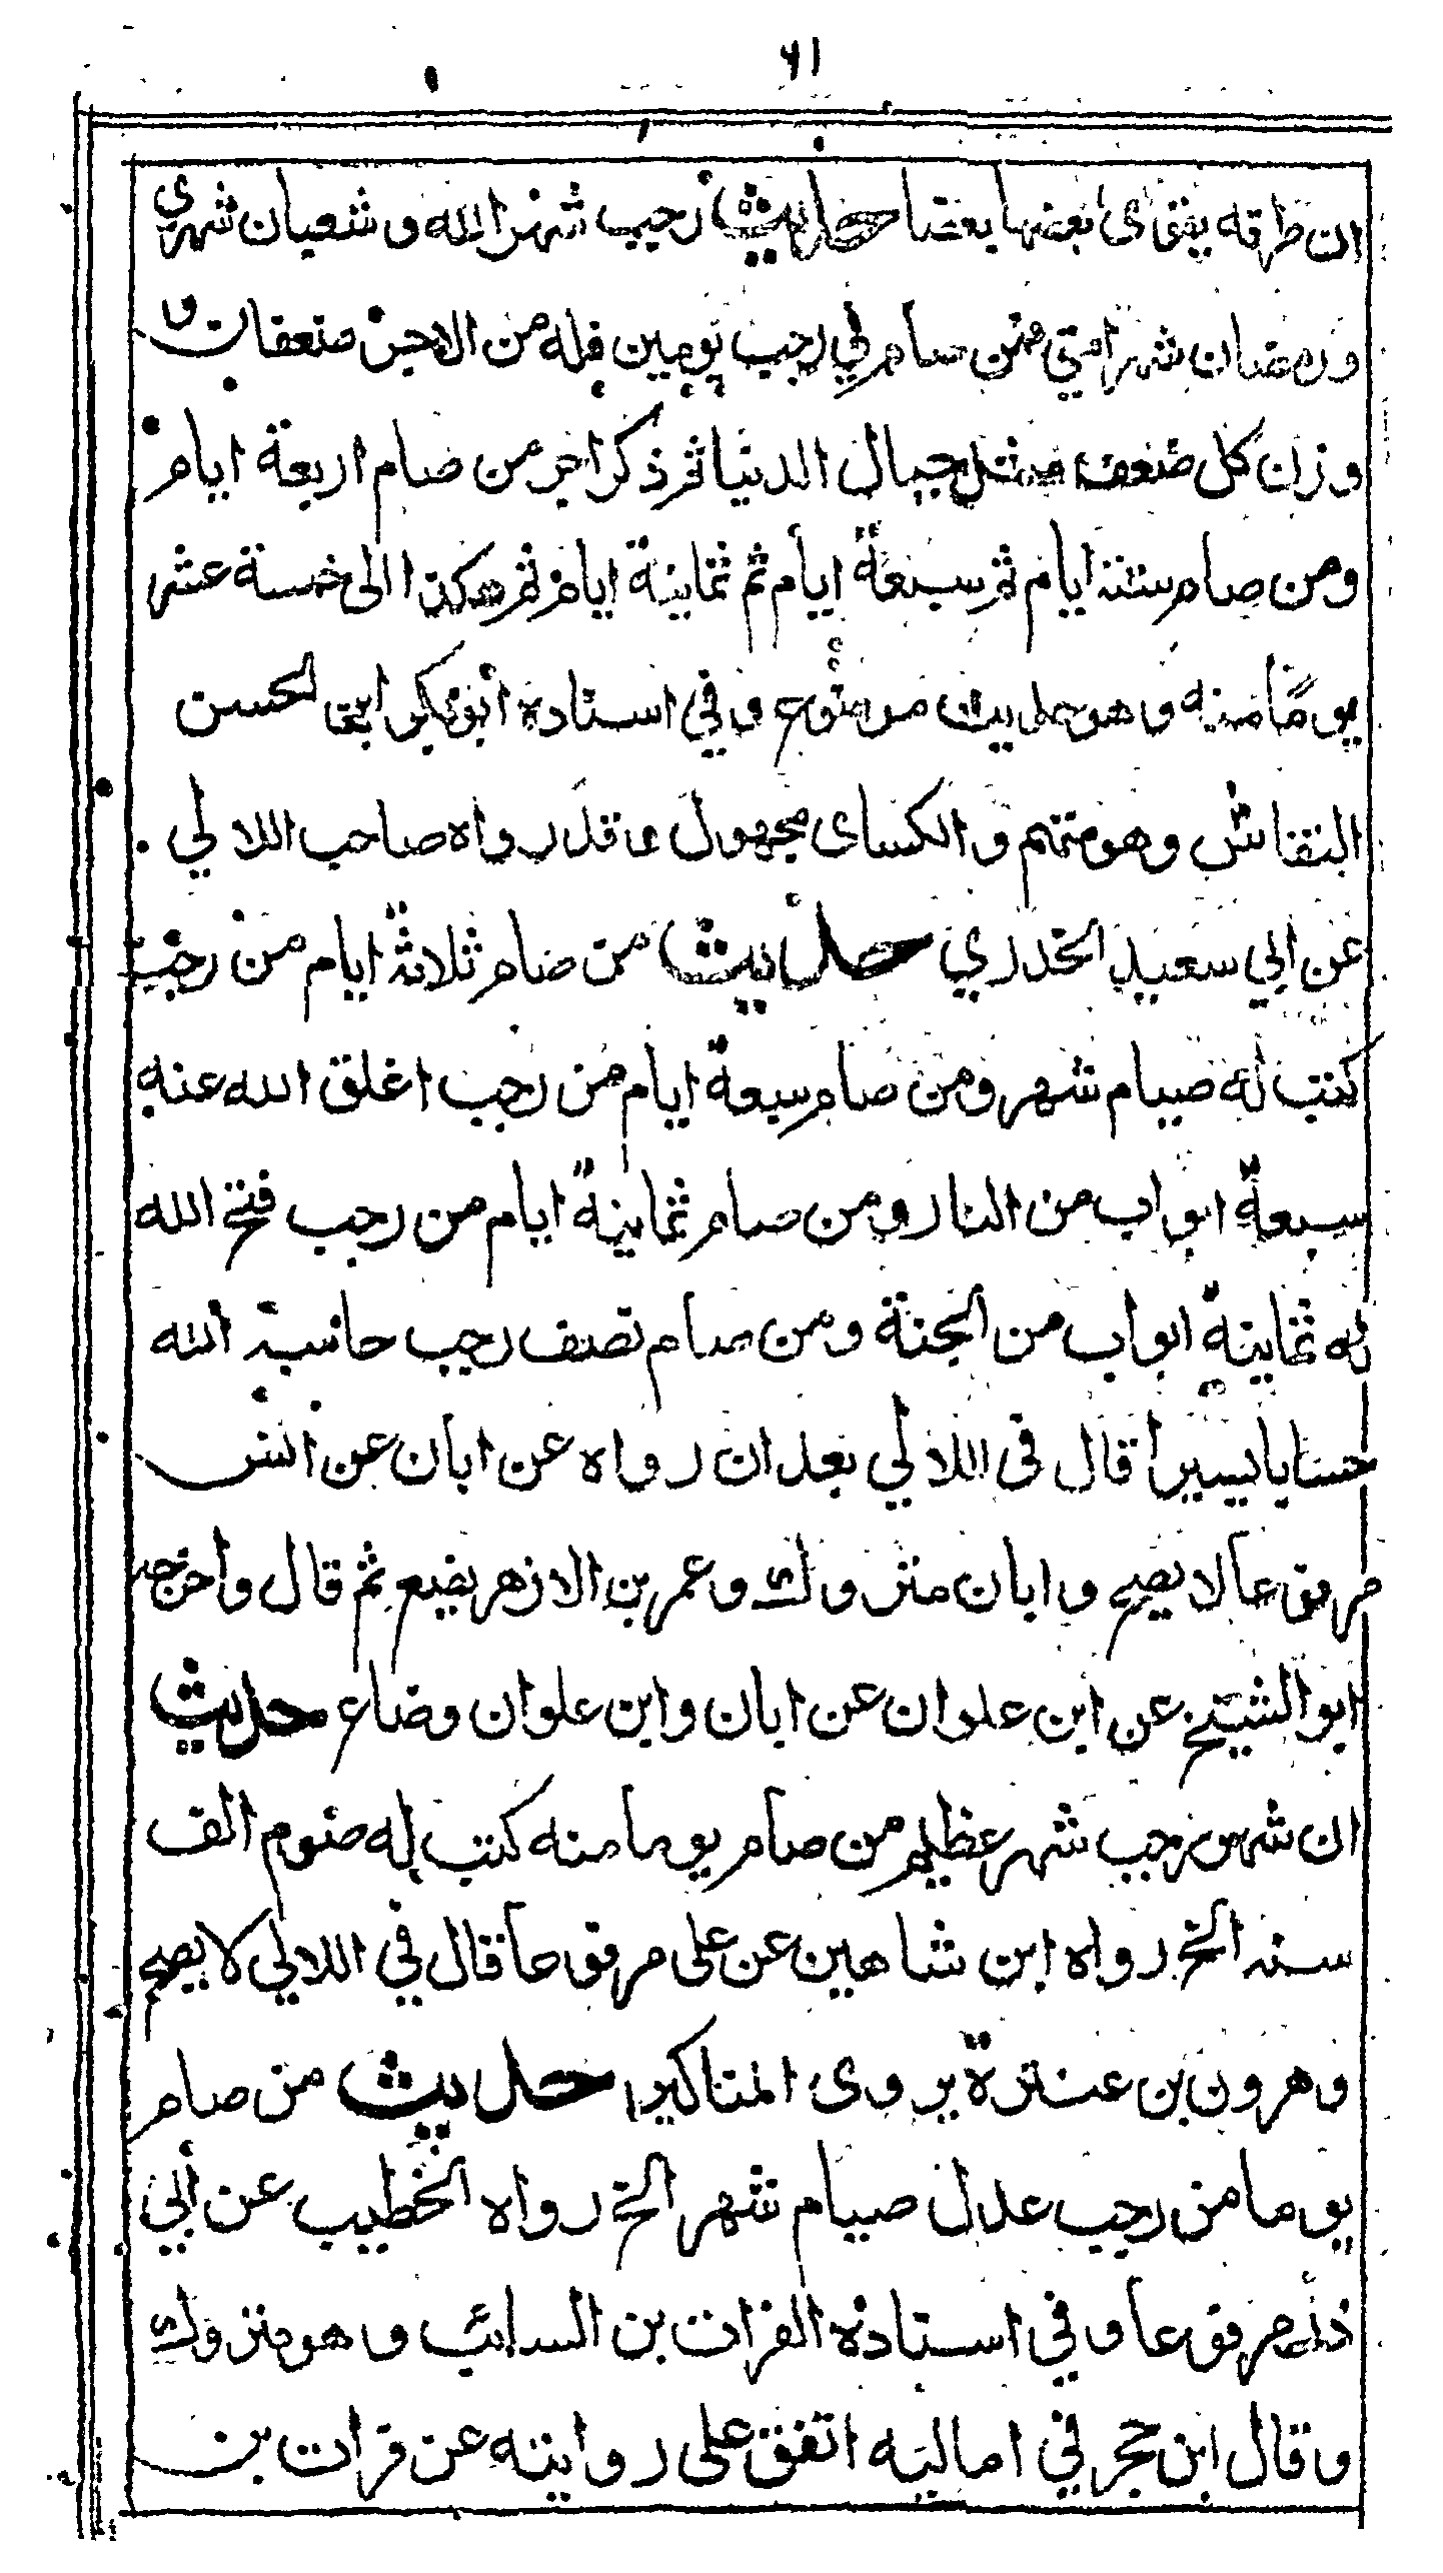 ٦١
ان طرقه يقوى بعضها بعضا حديث رجب شهر الله و شعبان شهري
ورمضان شهر امتي فمن صام في رجب يومين فله من الاجر ضعفان و
وزن كل ضعف مثل جبال الدنيا ثم ذكر اجر من صام اربعة ايام
ومن صام ستة ايام ثم سبعة ايام ثم ثمانية ايام ثم هكذا الى خمسة عشر
يوما منه و هو حديث موضوع و في اسناده ابو بكر ابن الحسن
النقاش وهو متهم و الكساى مجهول و قد رواه صاحب اللالي
عن ابي سعيد الخدري حديث من صام ثلاثة ايام من رجب
كتب له صيام شهر ومن صام سبعة ايام من رجب اغلق الله عنه
سبعة ابواب من النار ومن صام ثمانية ايام من رجب فتح الله
له ثمانية ابواب من الجنة ومن صام نصف رجب حاسبه الله
حسابا يسيرا قال في اللالي بعد ان رواه عن ابان عن انس
مرفوعا لا يصح و ابان متروك و عمر بن الازهر يضع ثم قال واخرجه
ابو الشيخ عن ابن علوان عن ابان وابن علوان وضاع حديث
ان شهر رجب شهر عظيم من صام يوما منه كتب له صوم الف
سنه الخ رواه ابن شاهين عن على مرفوعا قال في اللالي لا يصح
وهرون بن عنترة يروى المناكير حديث من صام
يوما من رجب عدل صيام شهر الخ رواه الخطيب عن ابي
ذر مرفوعا و في اسناده الفرات بن السائب و هو متروك
وقال ابن حجر في اماليه اتفق على روايته عن فرات بن